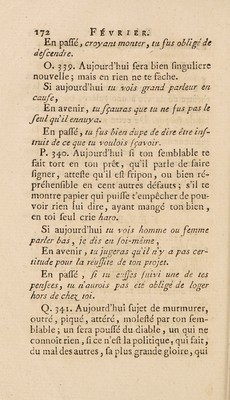 172 FÉVRIER.
En passé, croyant monter, tu fus obligé de
descendre.
O. 339. Aujourd'hui sera bien singuliere
nouvelle; mais en rien ne te fâche.
Si aujourd'hui tu vois grand parleur en
cause,
En avenir, tu sçauras que tu ne fus pas le
seul qu'il ennuya.
En passé, tu fus bien dupe de dire être ins-
truit de ce que tu voulois sçavoir.
P. 340. Aujourd'hui si ton semblable te
fait tort en ton prêt, qu'il parle de faire
signer, atteste qu'il est fripon, ou bien ré-
préhensible en cent autres défauts; s'il te
montre papier qui puisse t'empêcher de pou-
voir rien lui dire, ayant mangé ton bien,
en toi seul crie haro.
Si aujourd'hui tu vois homme ou femme
parler bas, je dis en soi-même,
En avenir, tu jugeras qu'il n'y a pas cer-
titude pour la réussite de ton projet.
En passé, si tu eusses suivi une de tes
pensées, tu n'aurois pas été obligé de loger
hors de chez toi.
Q. 341. Aujourd'hui sujet de murmurer,
outré, piqué, attéré, molesté par ton sem-
blable; un sera poussé du diable, un qui ne
connoit rien, si ce n'est la politique, qui fait,
du mal des autres, sa plus grande gloire, qui